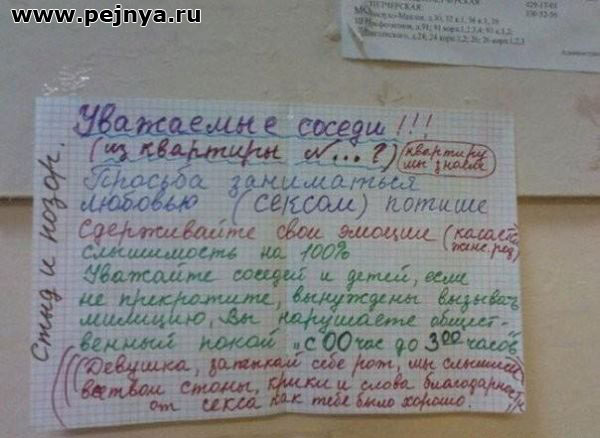 www.pejnya.ru
ПЕЧЕРСКАЯ
Уважаемые соседи!!!
(из квартиры №...?) (квартиру мы знаем)
Просьба заниматься
любовью (сексом) потише
Сдерживайте свои эмоции (касается женс. род)
слышимость на 100%
Уважайте соседей и детей, если
не прекратите, вынуждены вызывать
милицию, Вы нарушаете общест-
венный покой "с 00 час до 3 00 часов"
((Девушка, заткай себе рот, мы слышим
все твои стоны, крики и слова благодарности
от секса как тебе было хорошо.))
Стыд и позор.